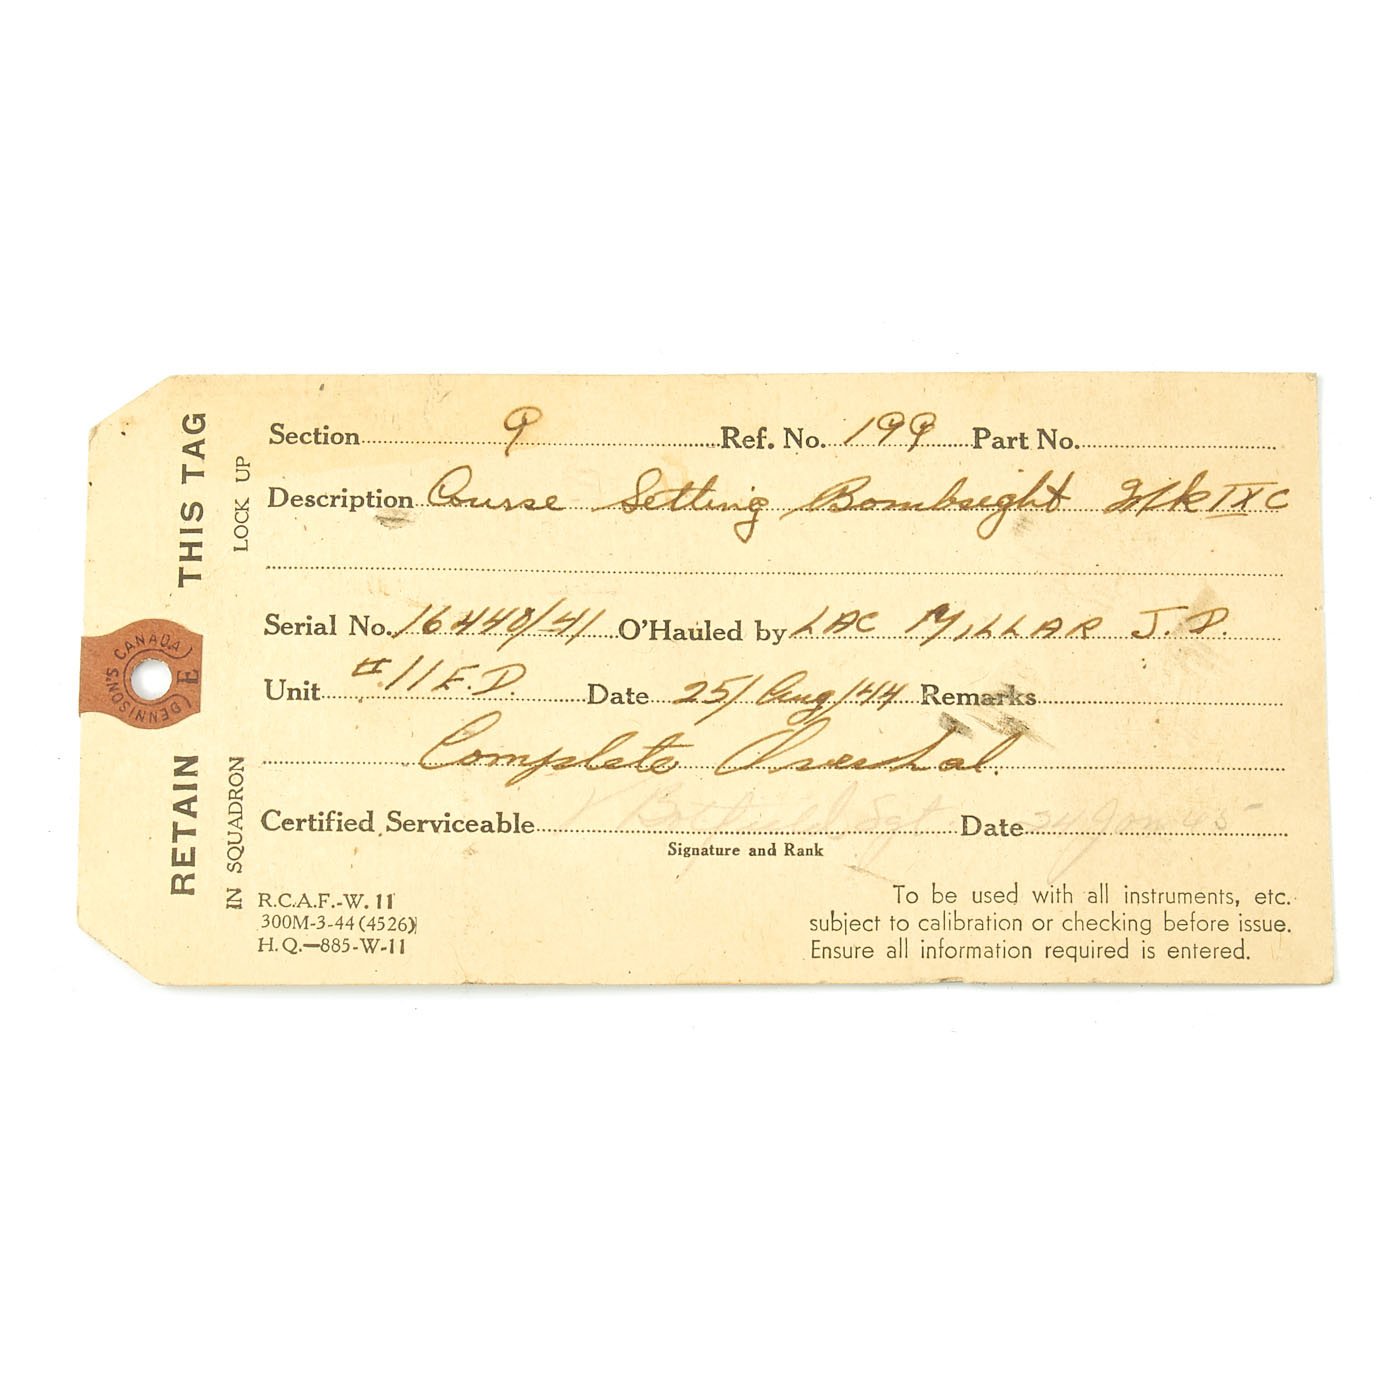 RETAIN THIS TAG
IN SQUADRON LOCK UP
DENNISON'S CANADA E
Section 9 Ref. No. 199 Part No.
Description Course Setting Bombsight Mk IX C
Serial No. 16440/41 O'Hauled by LAC MILLAR J.D.
Unit #11 E.D. Date 25/Aug/44 Remarks
Complete Overhal.
Certified Serviceable V Botfield Sgt Date 24 Jan 45
Signature and Rank
R.C.A.F.-W. 11
300M-3-44 (4526)
H.Q.—885-W-11
To be used with all instruments, etc.
subject to calibration or checking before issue.
Ensure all information required is entered.